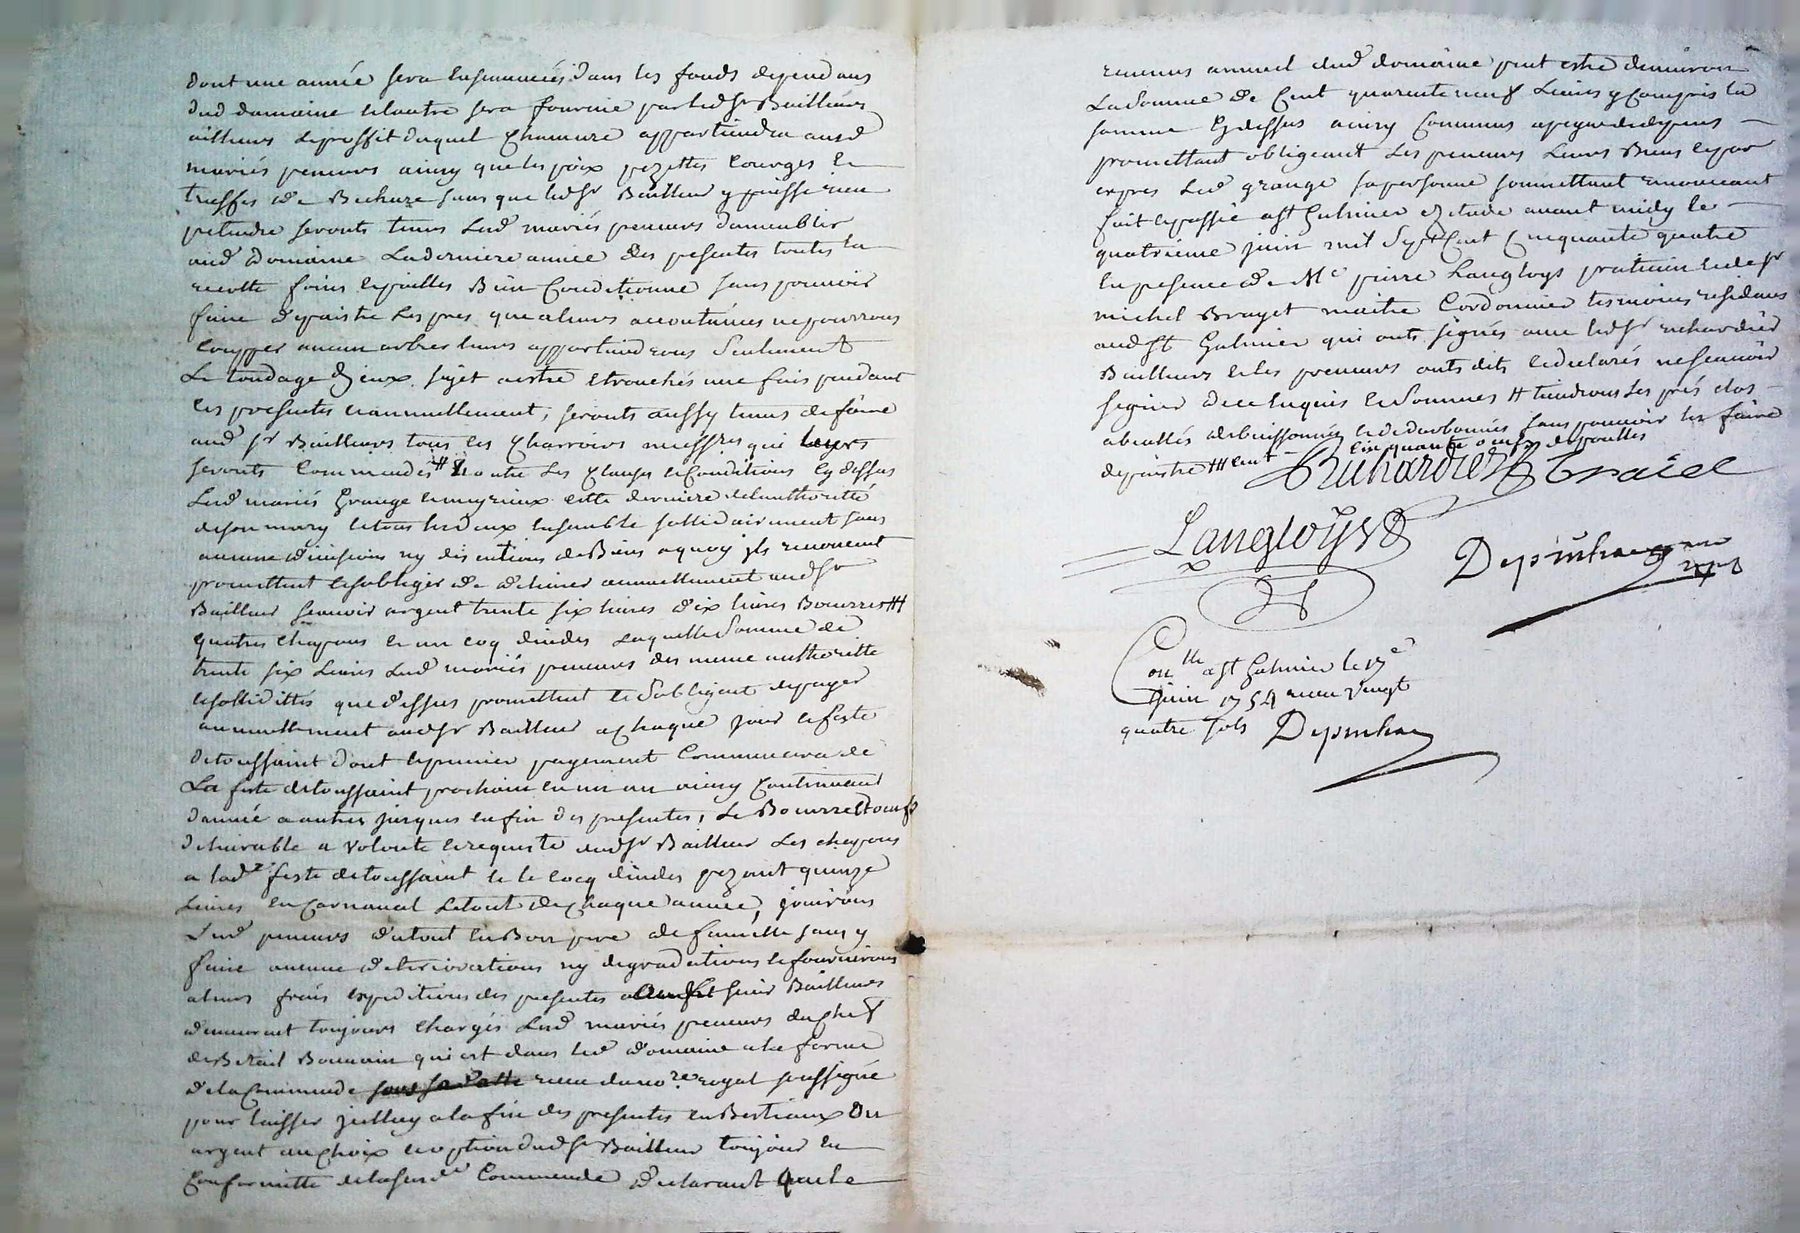 dont une année sera ensemencée dans les fonds dependans
dud domaine et lautre sera fournie par led Sr Bailleur
ailleurs le proffit duquel Chanure appartiendra ausd
mariés preneurs ainsy que les poix pezettes Courges et
treffes de Bechure sans que led Sr Bailleur y puisse rien
pretendre seronts tenus Lesd mariés preneurs dameublir
aud Domaine La derniere année Des presentes toutes la
recolte foins et pailles Bien Conditionné sans pouvoir
faire depaistre Les pres que aheures accoutumées ne pourrons
coupper aucun arbres leurs appartiendrons Seulement
Le tondage dyceux sujet aestre etronchés une fois pendant
les presentes et annuellement, seronts aussy tenus de faire
aud Sr Bailleurs tous les Charrois necessres qui leurs
seronts Commandés # outre Les Clauses et Conditions Cy dessus
Lesd mariés Grange et cette derniere de lauthorité
de son mary et tous les deux Ensemble sollidairement sans
aucune division ny discutions de Biens aquoy ils renoncent
promettent et sobliger de delivrer annuellement aud Sr
Bailleur scavoir argent trente six livres dix livres Beurres ###
quatres chapons et un coq dindes Laquelle Somme de
trente six Livres Lesd mariés preneurs des meme authoritté
et solliditté que dessus promettent et Sobligent de payer
annuellement aud Sr Bailleur a chaque jour et feste
de toussaint dont le premier payement Commencera de
La feste de toussaint prochain en un an ainsy Continuant
dannée a autres jusques en fin des presentes, Le Beurre
delivrable a volonté et requiste dud Sr Bailleur Les chapons
a lade feste de toussaint et le Cocq dindes pezant quinze
Livres en Carnaval Le tout de Chaque année, jouirons
Lesd preneurs du tout en Bon pere de famille sans y
faire aucune deteriorations ny degradations et fournirons
aleurs frais expeditions des presentes sieur Bailleurs
demeurant toujours Chargés Lesd mariés preneurs du chef
de Betail Bouvain qui est dans led domaine a la forme
de la Commande receu du nore royal soussigné
pour laisser jcelluy a la fin des presentes en Bestiaux Ou
argent au choix et option dud Sr Bailleur toujour En
Conformitté de la susde Commande declarant que le
revenus annuel dud domaine peut estre denviron
La Somme de Cent quarente neuf Livres y Compris la
somme Cy dessus ainsy Convenus apeyne de depens
promettant obligeant Les preneurs Leurs Biens et par
expres Led grange sa personne soumettant renoncant
fait et passé a St Galmier Estude avant midy le
quatrieme juin mil Sept Cent Cinquante quatre
En presence de Me pierre Langloys praticien et de Sr
michel Brayet maitre Cordonnier tesmoins residans
aud St Galmier qui onts signés avec led Sr richardier
Bailleurs et les preneurs onts dits et declarés ne scavoir
signer de ce Enquis et Sommés # tiendrons Les prés clos
abeallés de buissonnés et derbonnés sans pouvoir les faire
depaistre ### cent cinquante
Richardier Braiet
Langloys
Depinhac
Conlle a St Galmier le 17e
Juin 1754 receu vingt
quatre sols Depinhac